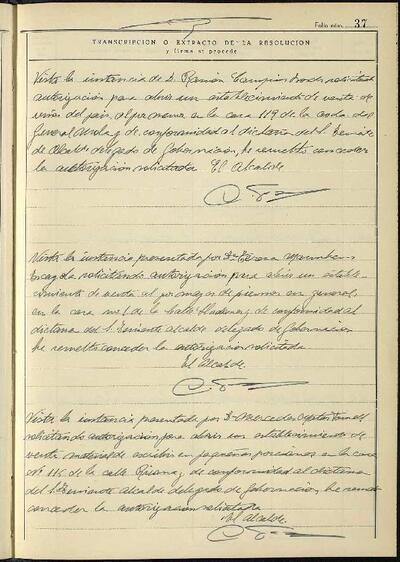 Folio núm. 37
TRANSCRIPCION O EXTRACTO DE LA RESOLUCION
y firma si procede
Vista la instancia de D. Ramón solicitando
autorización para abrir un establecimiento de venta de
vinos del país al por menor en la casa 119 de la
General de conformidad al dictamen del Sr. Teniente
de Alcalde delegado de Gobernación, he resuelto conceder
la autorización solicitada El Alcalde
Vista la instancia presentada por Dª
solicitando autorización para abrir un estable-
cimiento de venta al por mayor de en general,
en la casa nº 1 de la calle y de conformidad al
dictamen del Sr. Teniente alcalde delegado de Gobernación
he resuelto conceder la autorización solicitada
El Alcalde.
Vista la instancia presentada por Dª Mercedes
solicitando autorización para abrir un establecimiento de
venta material de escribir en pequeñas en la casa
nº 115 de la calle y de conformidad al dictamen
del Sr. Teniente alcalde delegado de Gobernación, he resuelto
conceder la autorización solicitada
El Alcalde.